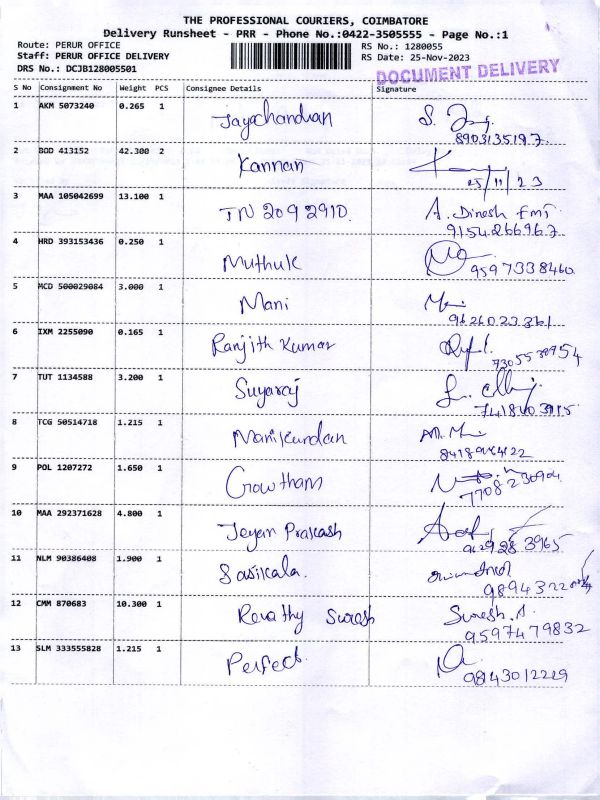 THE PROFESSIONAL COURIERS, COIMBATORE
Delivery Runsheet - PRR - Phone No.:0422-3505555 - Page No.:1
Route: PERUR OFFICE RS No.: 1280055
Staff: PERUR OFFICE DELIVERY RS Date: 25-Nov-2023
DRS No.: DCJB128005501 DOCUMENT DELIVERY
S No Consignment No Weight PCS Consignee Details Signature
1 AKM 5073240 0.265 1 Jayachandran
8903135197
2 BOD 413152 42.300 2 Kannan
25/11/23
3 MAA 105042699 13.100 1 TN 2092910. A. Dinesh
9154266967
4 HRD 393153436 0.250 1 Muthuk
9597338460
5 MCD 500029084 3.000 1 Mani
6 IXM 2255090 0.165 1 Ranjith Kumar
7305530954
7 TUT 1134588 3.200 1 Suyaraj
8 TCG 50514718 1.215 1 Manikundan
9 POL 1207272 1.650 1 Gowtham
7708230904
10 MAA 292371628 4.800 1 Jeyam Prakash
11 NLM 90386408 1.900 1 Sasikala.
12 CMM 870683 10.300 1 Revathy Suresh Suresh. A.
9597479832
13 SLM 333555828 1.215 1 Perfect.
9843012229